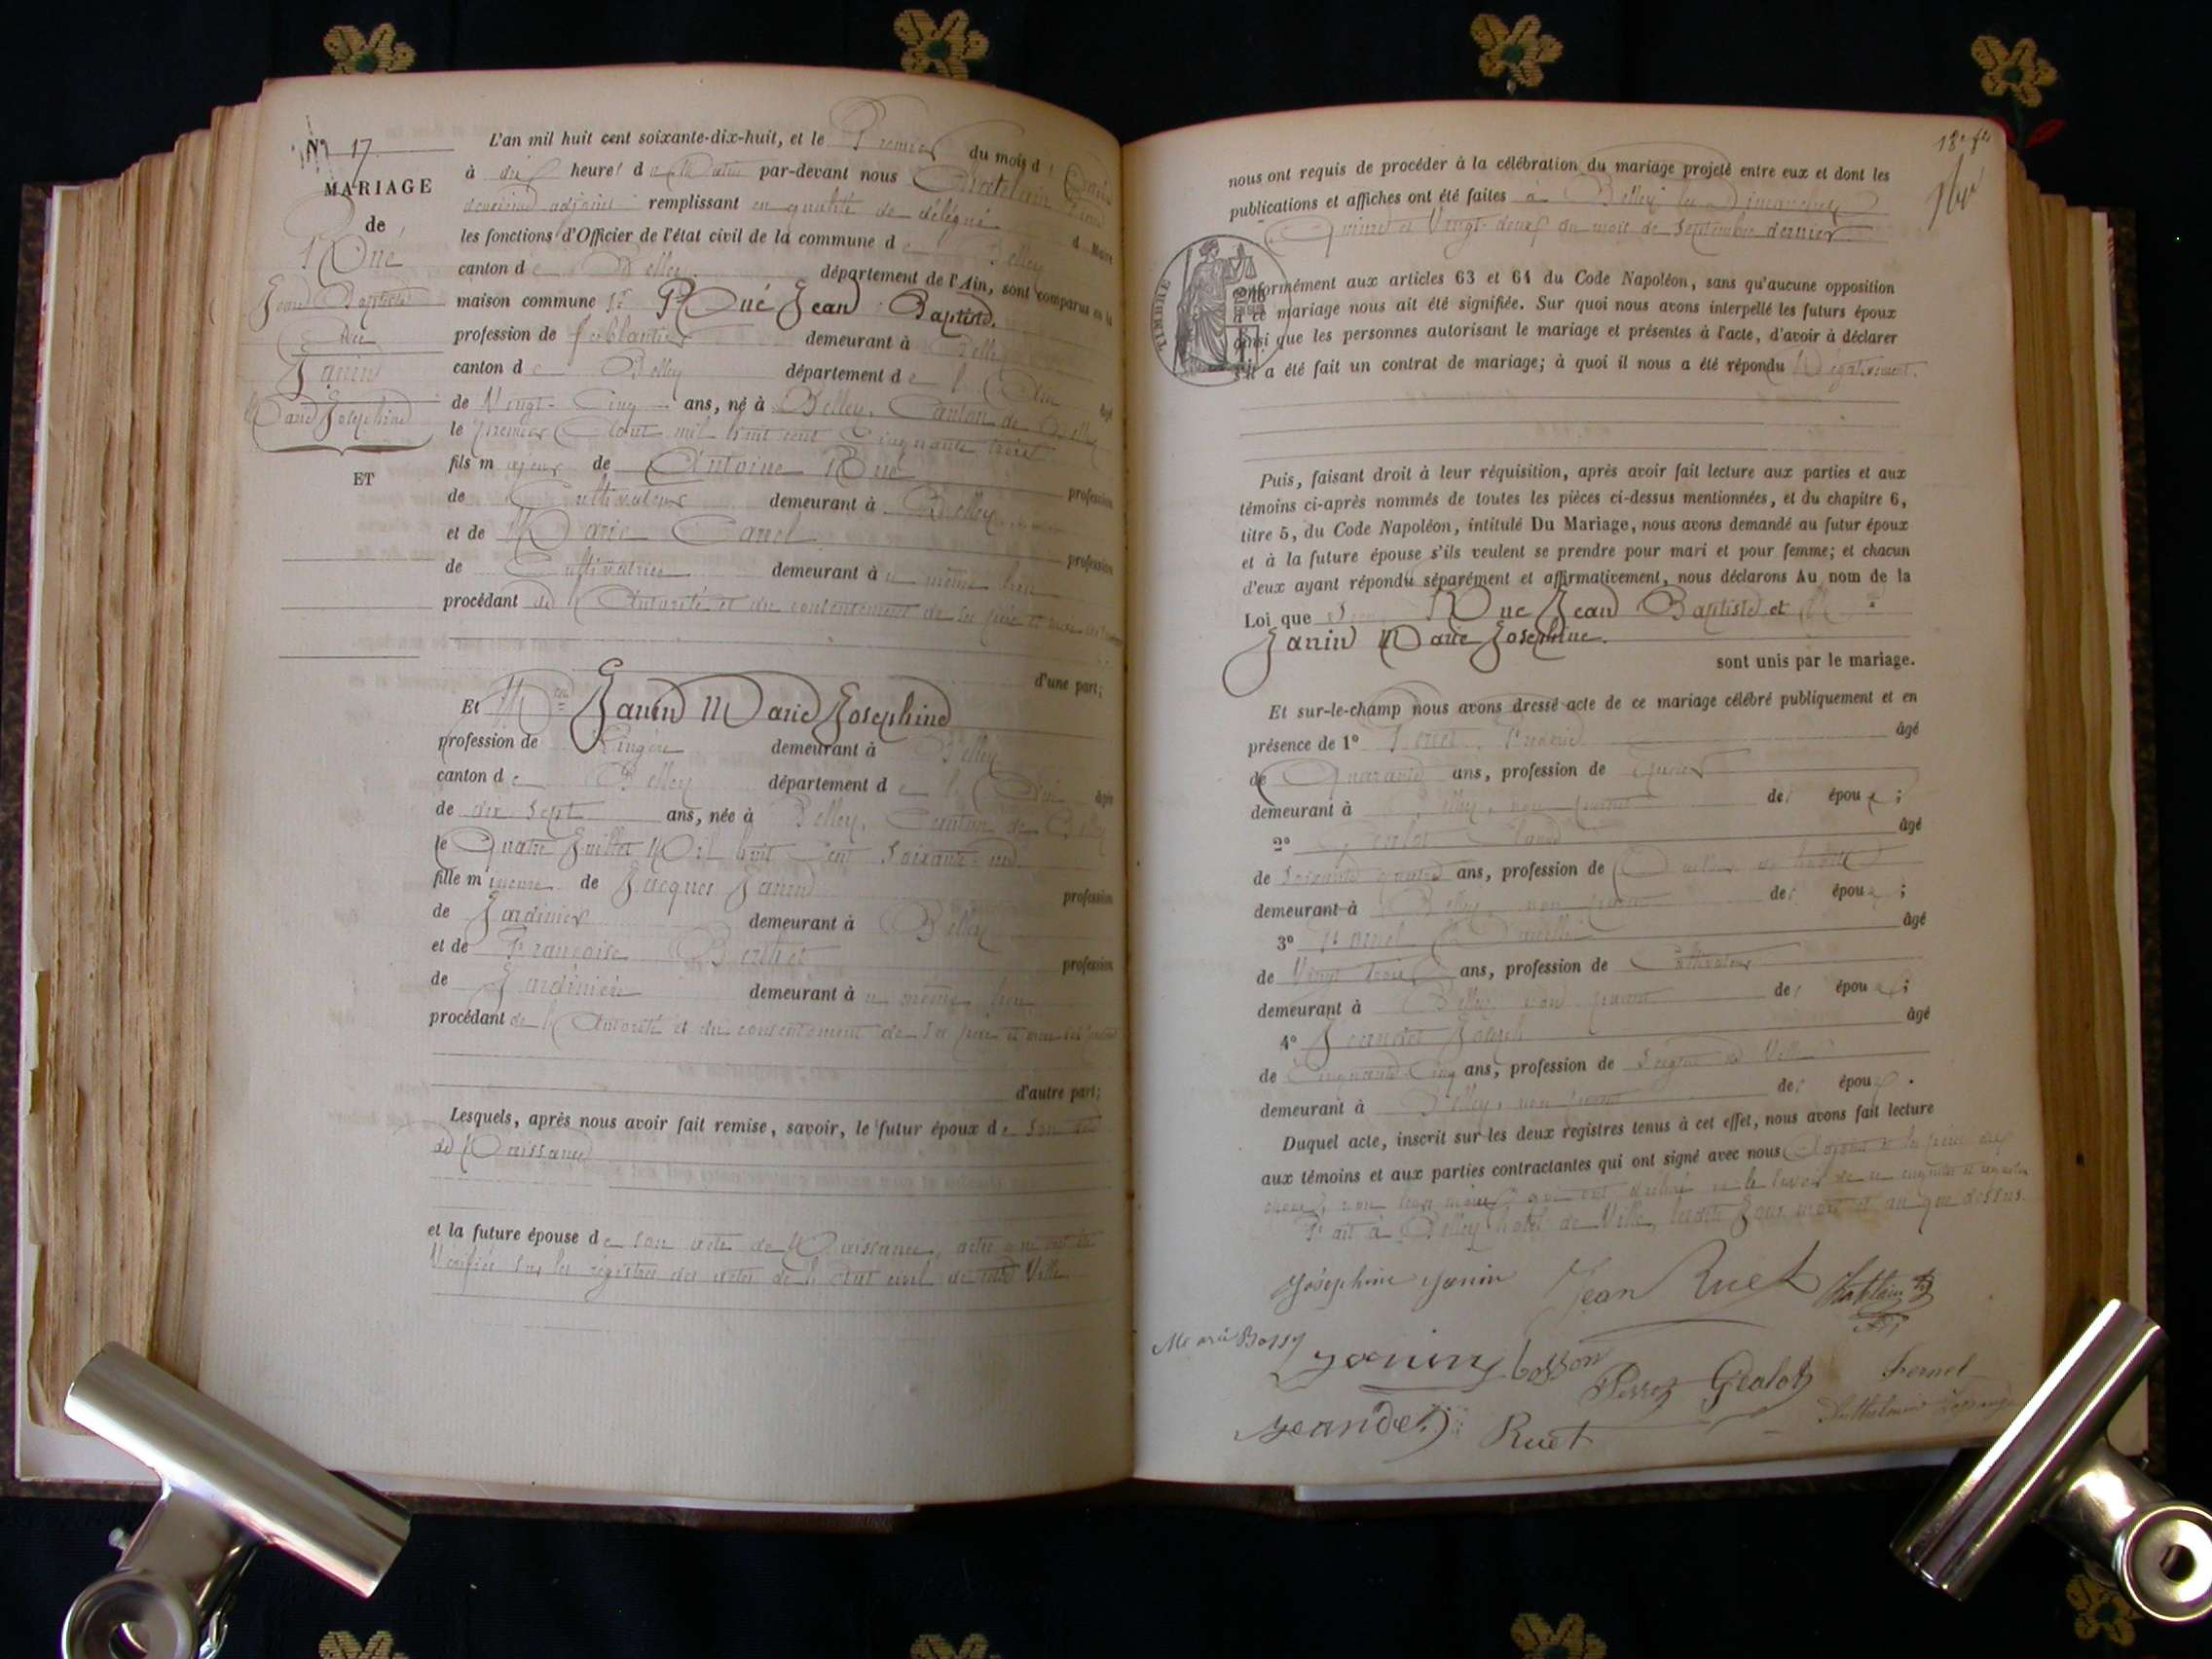 N° 17
MARIAGE
de
Rué
Jean Baptiste
et
Janin
Marie Joséphine
ET
L'an mil huit cent soixante-dix-huit, et le Premier du mois d
à dix heures d par-devant nous
deuxième adjoint remplissant en qualité de délégué d Maire
les fonctions d'Officier de l'état civil de la commune de Belley
canton de Belley département de l'Ain, sont comparus en la
maison commune Sr Rué Jean Baptiste.
profession de ferblantier demeurant à Belley
canton de Belley département de l'Ain âgé
de Vingt-Cinq ans, né à Belley, Canton de Belley
le premier Août mil huit cent Cinquante trois
fils majeur de Antoine Rué profession
de Cultivateur demeurant à Belley
et de Marie Carrel profession
de Cultivatrice demeurant au même lieu
procédant de l'Autorité et du consentement de ses père et mère
d'une part;
Et Melle Janin Marie Joséphine
profession de Lingère demeurant à Belley
canton de Belley département de l'Ain âgée
de dix sept ans, née à Belley, Canton de Belley
le Quatre Juillet Mil huit Cent Soixante-un
fille mineure de Jacques Janin profession
de Jardinier demeurant à Belley
et de Françoise Berthet profession
de Jardinière demeurant au même lieu
procédant de l'Autorité et du consentement de ses père et mère
d'autre part;
Lesquels, après nous avoir fait remise, savoir, le futur époux de son acte
de Naissance
et la future épouse de son acte de Naissance, actes qui ont été
Vérifiés sur les registres des actes de l'Etat civil de cette Ville
nous ont requis de procéder à la célébration du mariage projeté entre eux et dont les
publications et affiches ont été faites à Belley les Dimanches
Quinze et Vingt-deux du mois de Septembre dernier
TIMBRE
conformément aux articles 63 et 64 du Code Napoléon, sans qu'aucune opposition
à ce mariage nous ait été signifiée. Sur quoi nous avons interpellé les futurs époux
ainsi que les personnes autorisant le mariage et présentes à l'acte, d'avoir à déclarer
s'il a été fait un contrat de mariage; à quoi il nous a été répondu Négativement.
Puis, faisant droit à leur réquisition, après avoir fait lecture aux parties et aux
témoins ci-après nommés de toutes les pièces ci-dessus mentionnées, et du chapitre 6,
titre 5, du Code Napoléon, intitulé Du Mariage, nous avons demandé au futur époux
et à la future épouse s'ils veulent se prendre pour mari et pour femme; et chacun
d'eux ayant répondu séparément et affirmativement, nous déclarons Au nom de la
Loi que Rué Jean Baptiste et
Janin Marie Joséphine.
sont unis par le mariage.
Et sur-le-champ nous avons dressé acte de ce mariage célébré publiquement et en
présence de 1° âgé
de Quarante ans, profession de
demeurant à Belley, non parent des époux;
2° Gelot Claude âgé
de soixante quatre ans, profession de
demeurant à Belley non parent des époux;
3° Fornel Marcellin âgé
de Vingt trois ans, profession de Cultivateur
demeurant à Belley non parent des époux;
4° Jeandet Joseph âgé
de Cinquante-Cinq ans, profession de Sergent de Ville
demeurant à Belley, non parent des époux.
Duquel acte, inscrit sur les deux registres tenus à cet effet, nous avons fait lecture
aux témoins et aux parties contractantes qui ont signé avec nous
époux, non leurs mères qui ont déclaré ne le savoir de ce enquises et requises
Fait à Belley hôtel de Ville, lesdits Jour, mois et an que dessus.
Joséphine Janin Jean Ruet
Marie Bossy
Janin bosson
Perroz Gealot Fornel
Jeandet Ruet